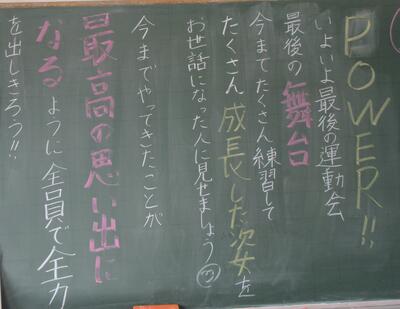 POWER!!
いよいよ最後の運動会
最後の舞台
今までたくさん練習して
たくさん成長した姿を
お世話になった人に見せましょう
今までやってきたことが
最高の思い出に
なるように全員で全力
を出しきろう!!